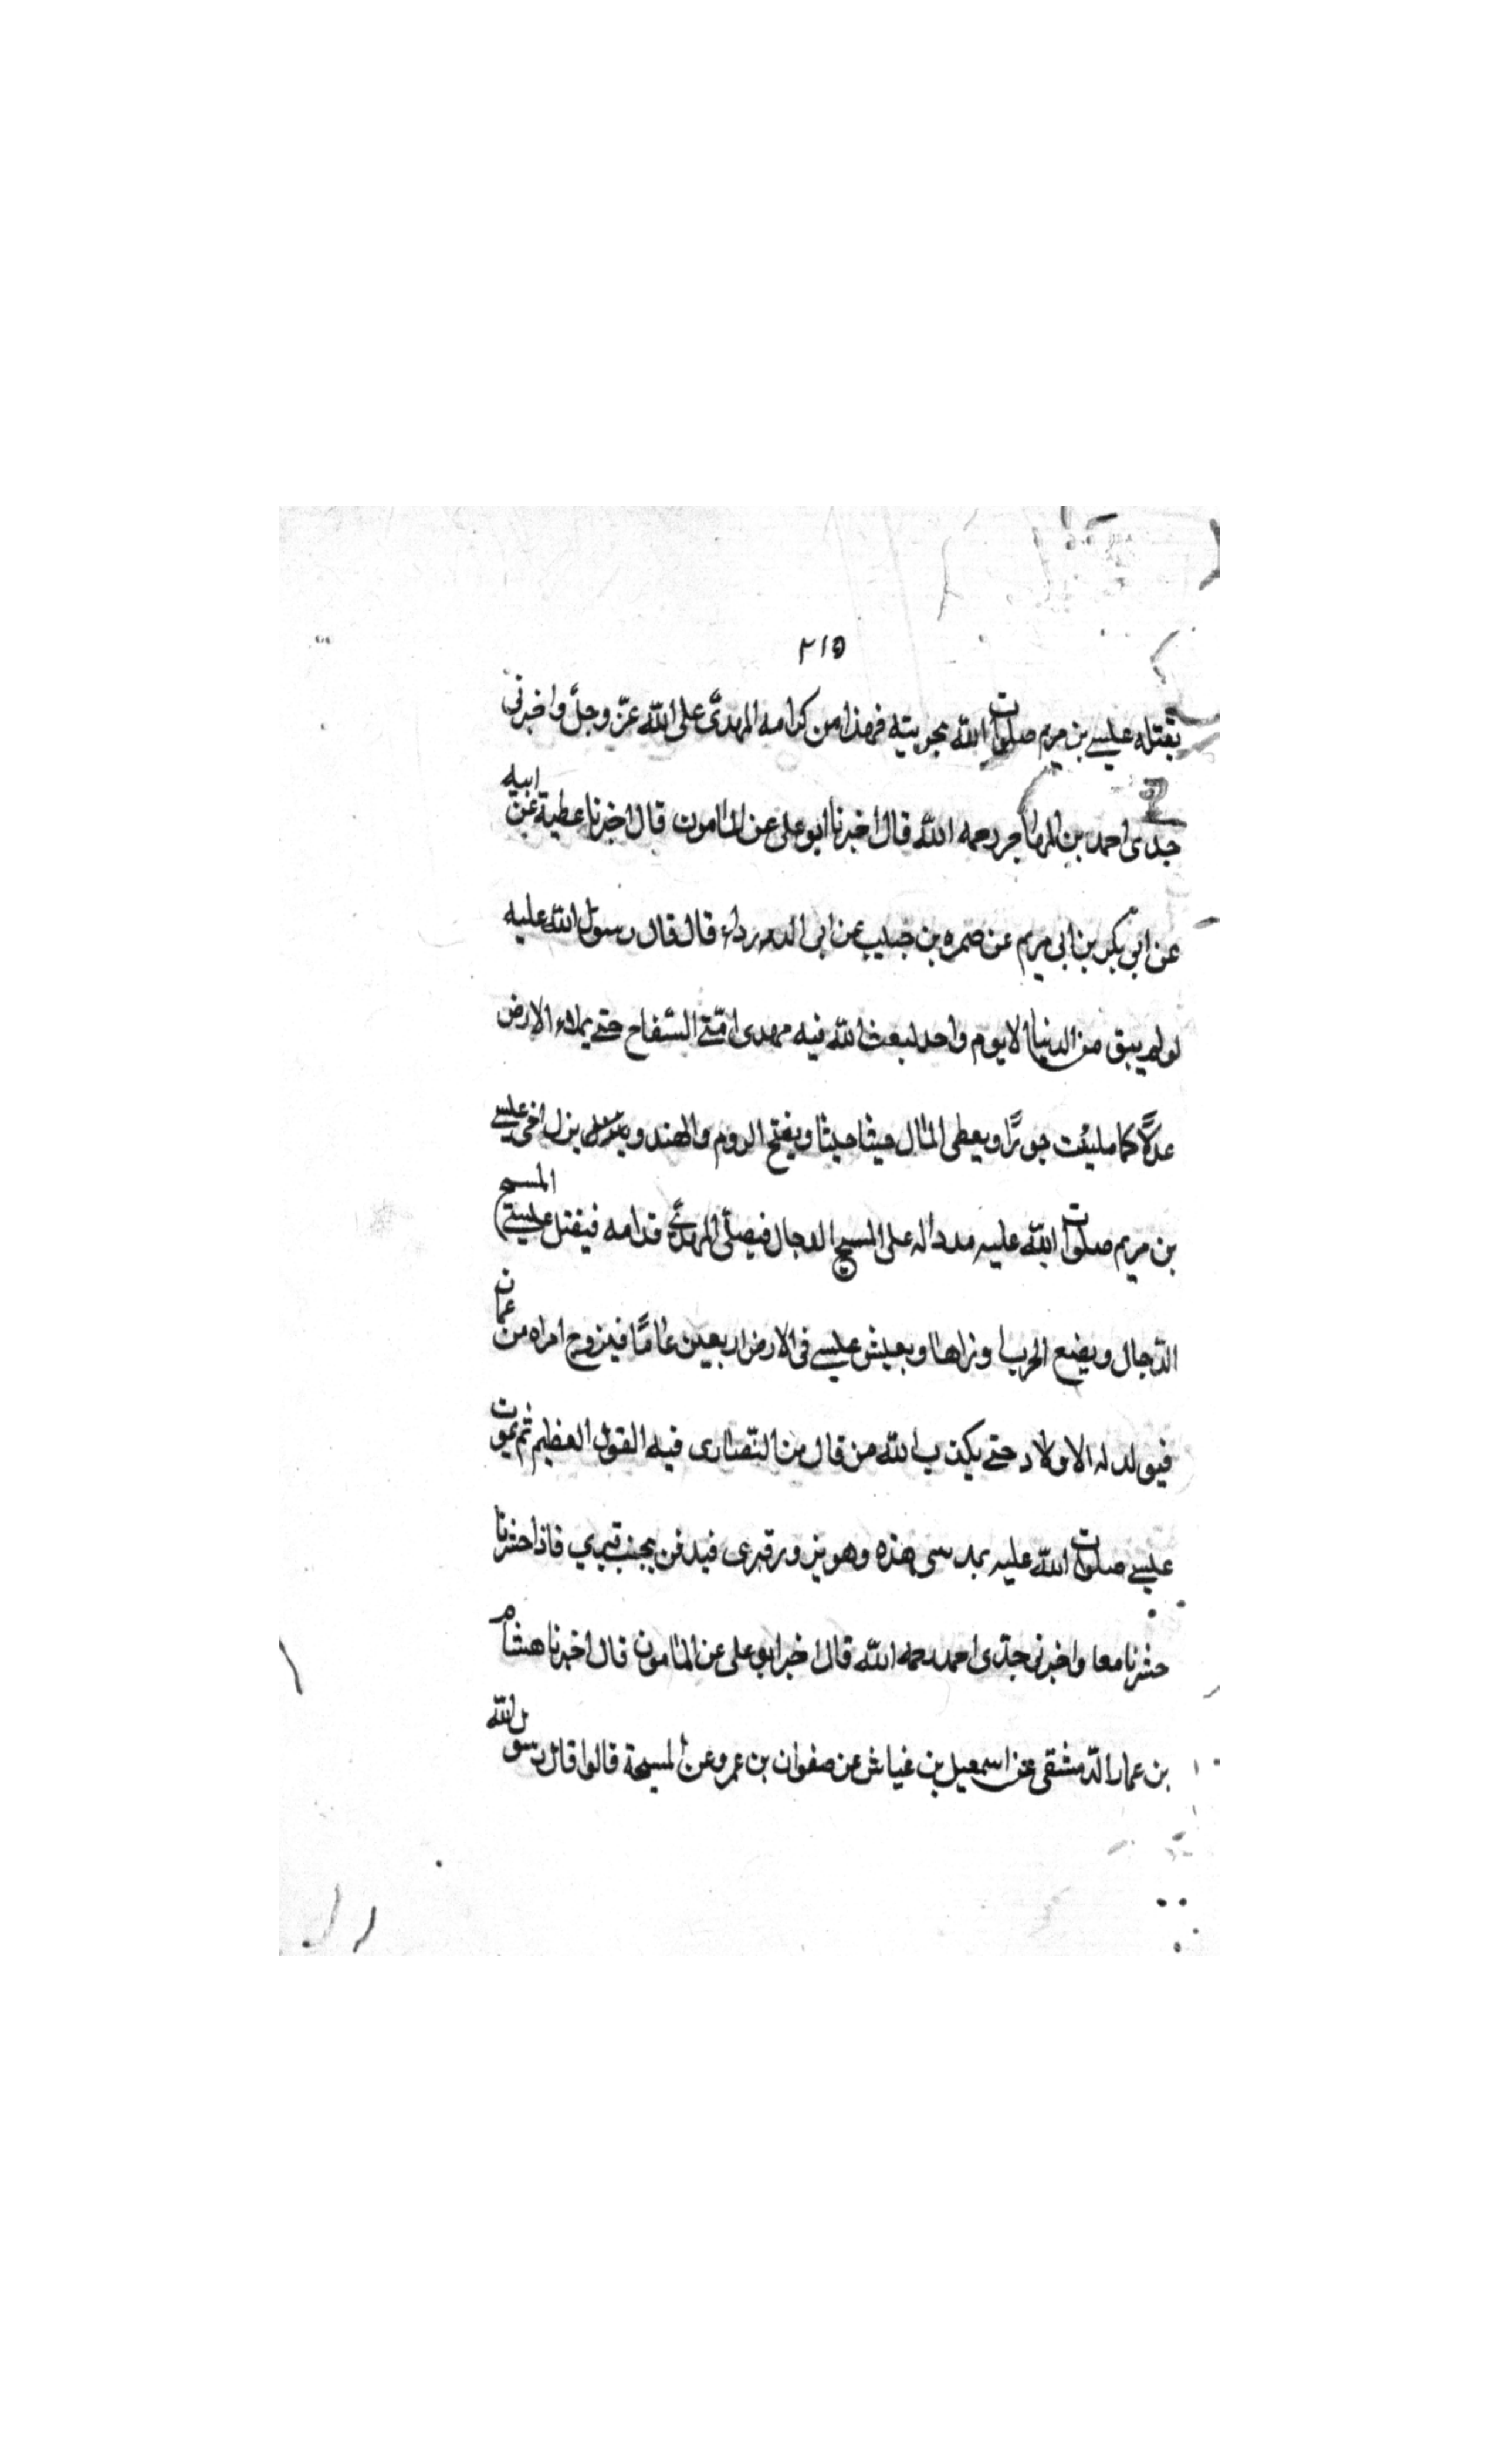 ٢١٥
يقتله عيسے بن مريم صلوات الله بحربته فهذا من كرامه المهدىّ على الله عزّ وجلّ واخبرنى
جدى احمد بن المهاجر رحمه الله قال اخبرنا ابو على عن المامون قال اخبرنا عطية عن ابيه
عن ابو بكر بن ابى مريم عن ضمره بن حبيب عن ابى الدرداء قال قال رسول الله عليه
لو لم يبق من الدنيا الا يوم واحد لبعث الله فيه مهدى امّتے السّفاح حتے يملاء الارض
عدلًا كما مليئت جورًا ويعطى المال حيثا حيثا ويفتح الروم والهند و ينزل اخى عيسے
بن مريم صلوات الله عليه مددا له على المسيح الدجال فيصلّى المهدىّ قدامه فيقتل عيسےٰ المسيح
الدّجال ويضع الحرب اوزارها ويعيش عيسے فى الارض اربعين عامًا فيزوج امراه من عمان
فيولد له الاولاد حتے يكذب الله من قال من النّصارى فيه القول العظيم ثم يموت
عيسے صلوات الله عليه بمدسى هذه وهو يزور قبرى فيدفن بجنب قبري فاذا حشرنا
حشرنا معا واخبرنى جدّى احمد رحمه الله قال اخبر ابو على عن المامون قال اخبرنا هشام
بن عمار الدّمشقى عن اسمعيل بن عياش عن صفوان بن عمرو عن المسيحة قالوا قال رسول الله